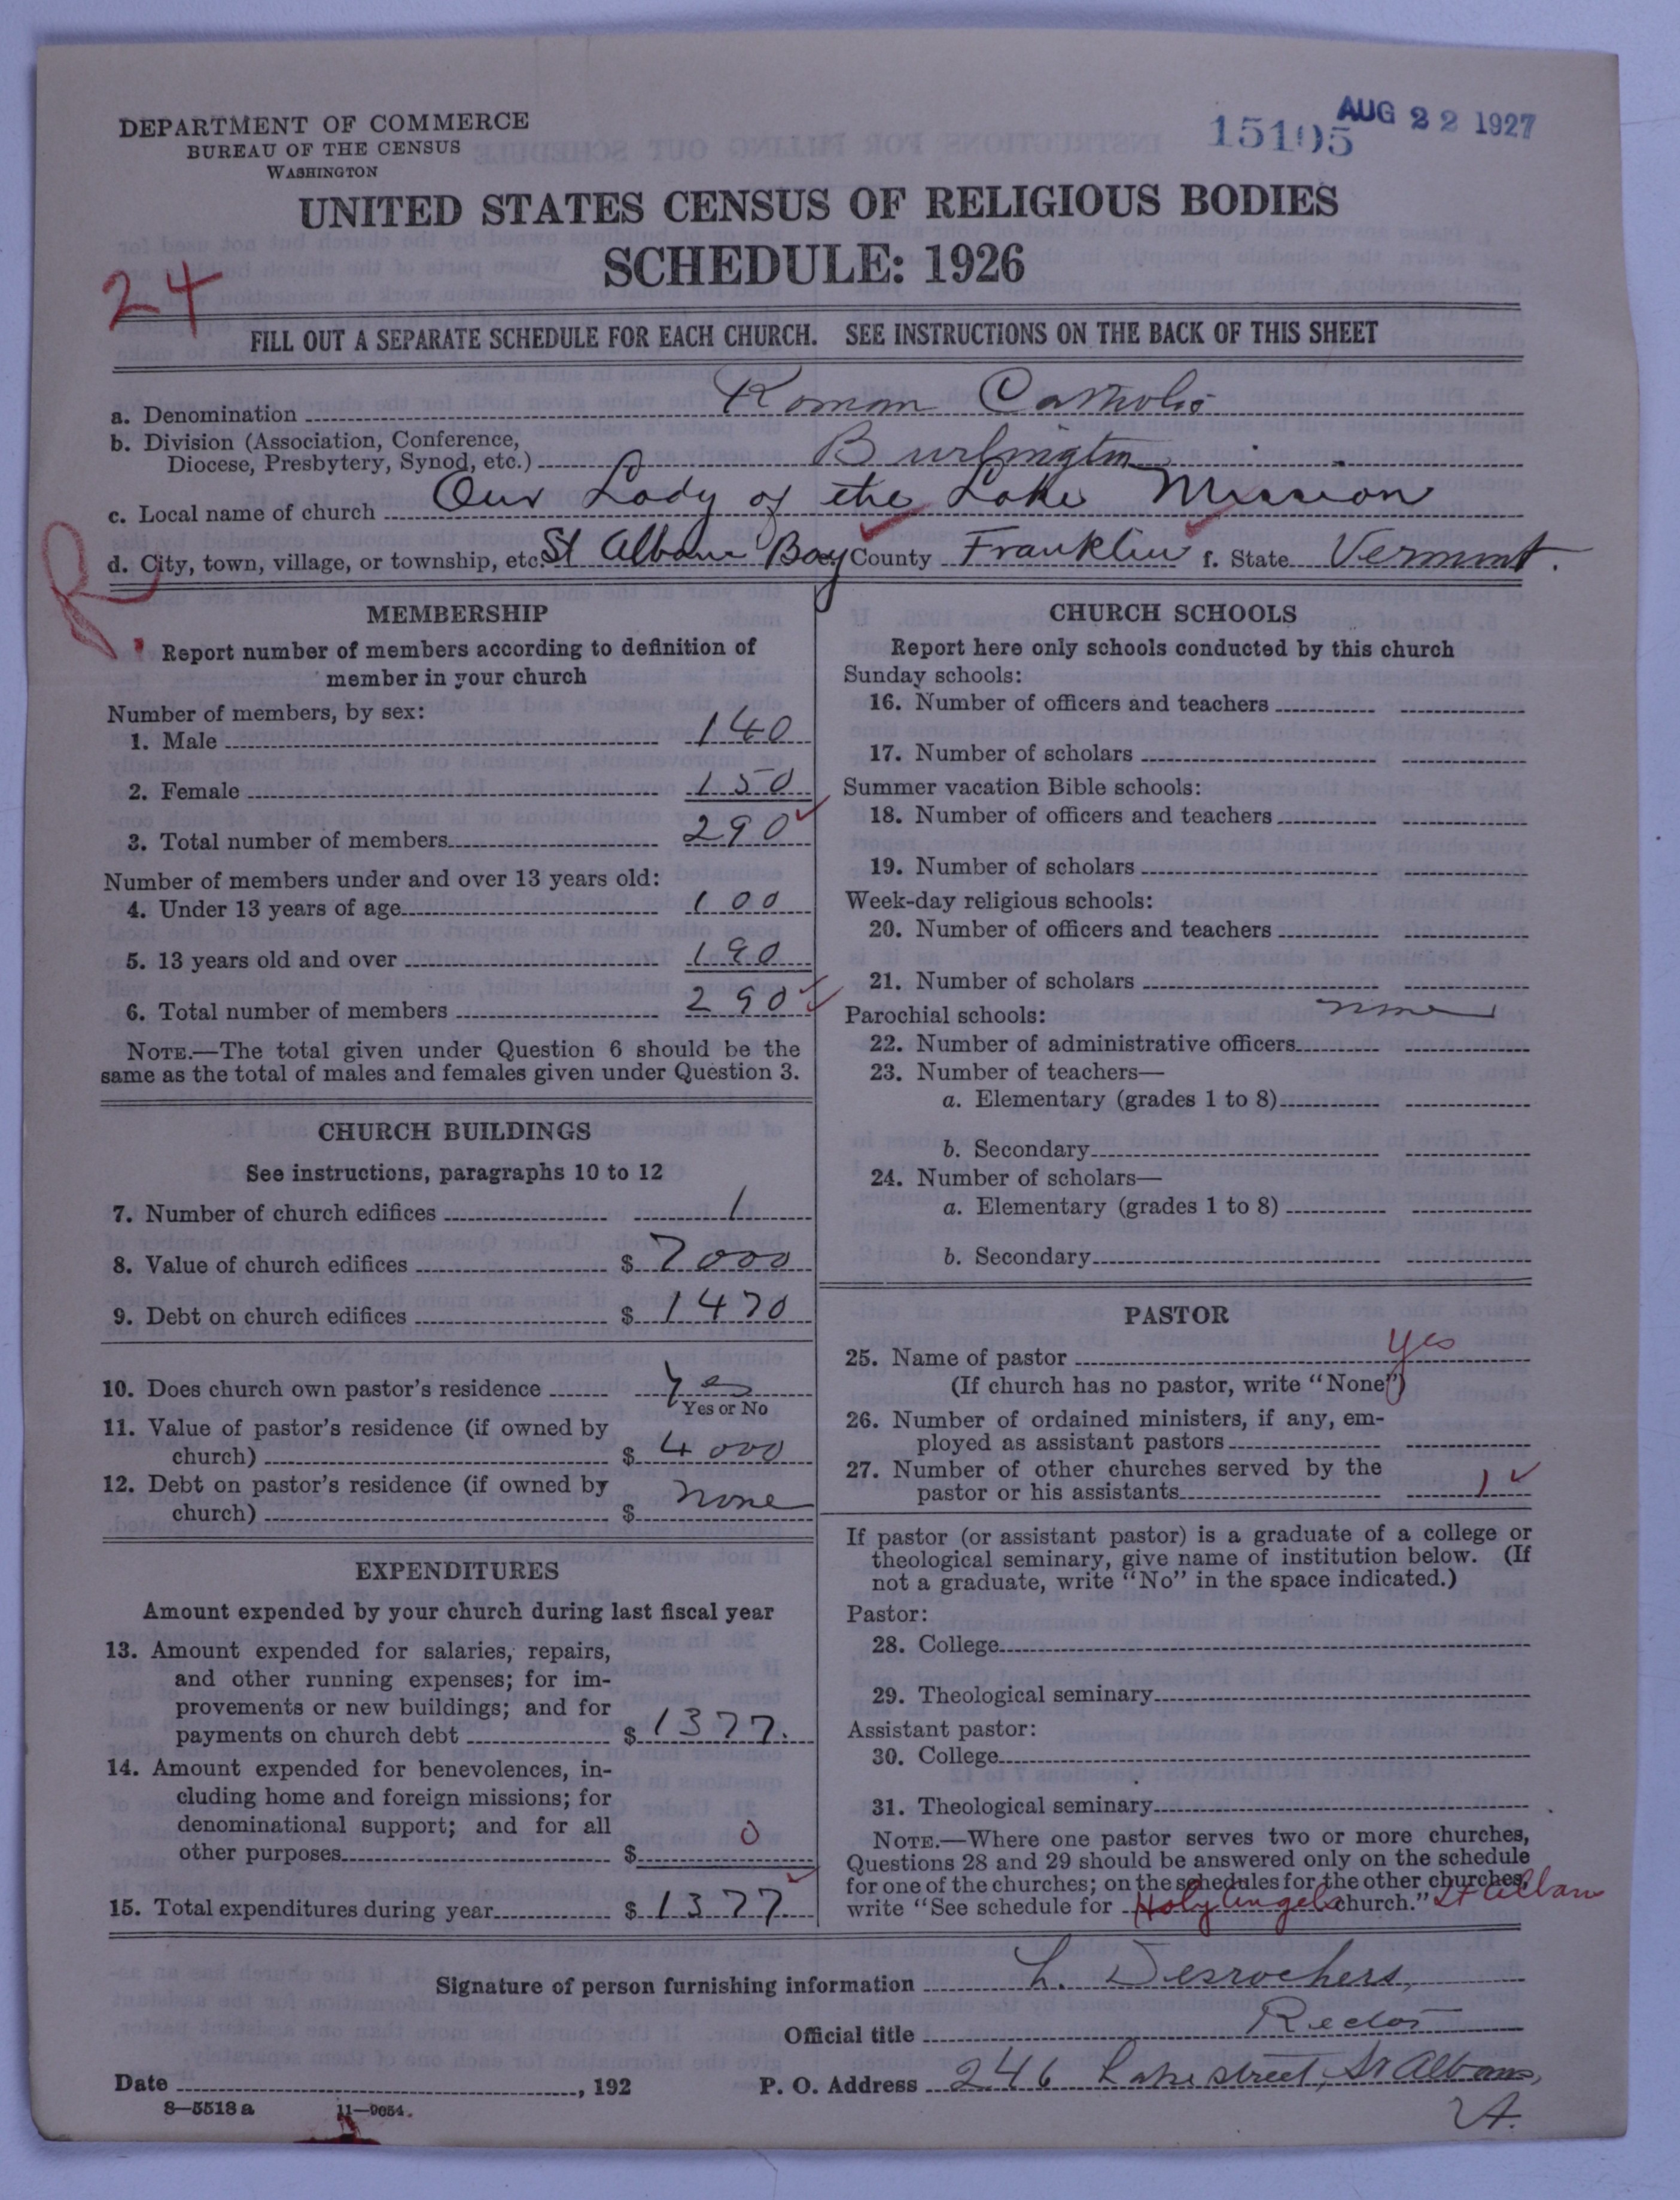 DEPARTMENT OF COMMERCE
BUREAU OF THE CENSUS
WASHINGTON
15105 AUG 22 1927
UNITED STATES CENSUS OF RELIGIOUS BODIES
SCHEDULE: 1926
24
FILL OUT A SEPARATE SCHEDULE FOR EACH CHURCH. SEE INSTRUCTIONS ON THE BACK OF THIS SHEET
a. Denomination Roman Catholic
b. Division (Association, Conference,
Diocese, Presbytery, Synod, etc.) Burlington
c. Local name of church Our Lady of the Lake Mission
d. City, town, village, or township, etc. St Albans Bay County Franklin f. State Vermont.
R
MEMBERSHIP
Report number of members according to definition of
member in your church
Number of members, by sex:
1. Male 140
2. Female 150
3. Total number of members 290
Number of members under and over 13 years old:
4. Under 13 years of age 100
5. 13 years old and over 190
6. Total number of members 290
NOTE.—The total given under Question 6 should be the
same as the total of males and females given under Question 3.
CHURCH BUILDINGS
See instructions, paragraphs 10 to 12
7. Number of church edifices 1
8. Value of church edifices $ 7000
9. Debt on church edifices $ 1470
10. Does church own pastor's residence Yes
Yes or No
11. Value of pastor's residence (if owned by
church) $ 4000
12. Debt on pastor's residence (if owned by
church) $ none
EXPENDITURES
Amount expended by your church during last fiscal year
13. Amount expended for salaries, repairs,
and other running expenses; for im-
provements or new buildings; and for
payments on church debt $ 1377.
14. Amount expended for benevolences, in-
cluding home and foreign missions; for
denominational support; and for all
other purposes $ 0
15. Total expenditures during year $ 1377
CHURCH SCHOOLS
Report here only schools conducted by this church
Sunday schools:
16. Number of officers and teachers
17. Number of scholars
Summer vacation Bible schools:
18. Number of officers and teachers
19. Number of scholars
Week-day religious schools:
20. Number of officers and teachers
21. Number of scholars
Parochial schools: none
22. Number of administrative officers
23. Number of teachers—
a. Elementary (grades 1 to 8)
b. Secondary
24. Number of scholars—
a. Elementary (grades 1 to 8)
b. Secondary
PASTOR
25. Name of pastor yes
(If church has no pastor, write "None")
26. Number of ordained ministers, if any, em-
ployed as assistant pastors
27. Number of other churches served by the
pastor or his assistants 1
If pastor (or assistant pastor) is a graduate of a college or
theological seminary, give name of institution below. (If
not a graduate, write "No" in the space indicated.)
Pastor:
28. College
29. Theological seminary
Assistant pastor:
30. College
31. Theological seminary
NOTE.—Where one pastor serves two or more churches,
Questions 28 and 29 should be answered only on the schedule
for one of the churches; on the schedules for the other churches,
write "See schedule for Holy Angels church." St Albans
Signature of person furnishing information L. Desrochers,
Official title Rector
Date , 192 P. O. Address 246 Lake street, St Albans,
Vt.
8—5518 a 11—9054